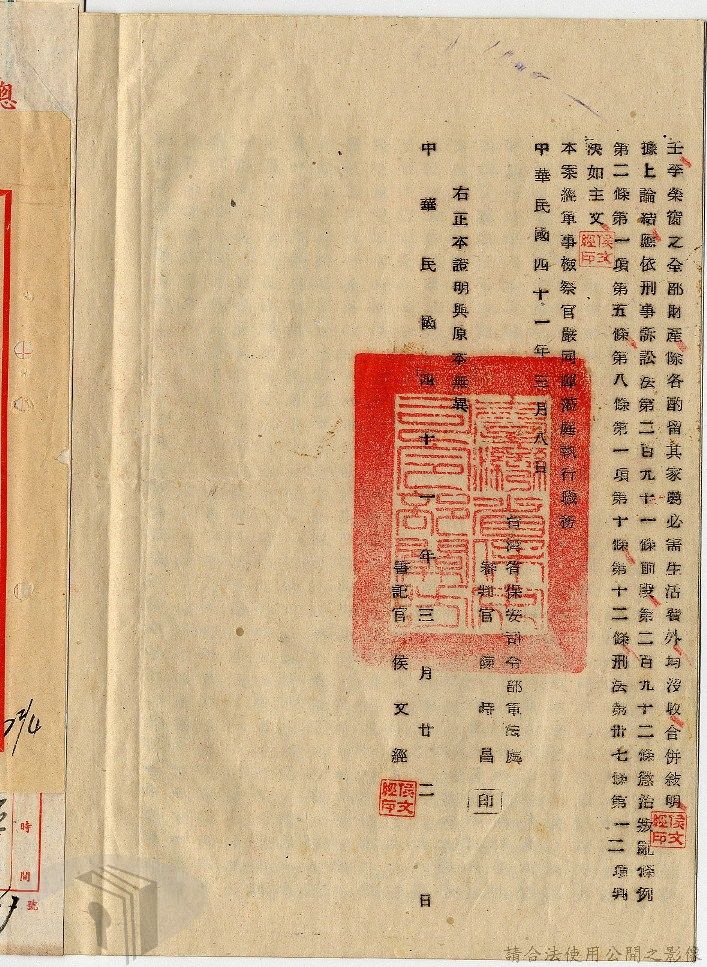 王李榮窗之全部財產除各酌留其家屬必需生活費外均沒收合併敍明
據上論結應依刑事訴訟法第二百九十一條前段第二百九十二條懲治叛亂條例
第二條第一項第五條第八條第一項第十條第十二條刑法第卅七條第一二項判
決如主文
本案經軍事檢察官嚴 蒞庭執行職務
中華民國四十一年三月八日
台灣省保安司令部軍法處
審判官 陳時昌 印
右正本證明與原本無異
中華民國四十一年三月廿二日
書記官 侯文經
侯文經印
侯文經印
侯文經印
時間
號
總
請合法使用公開之影像